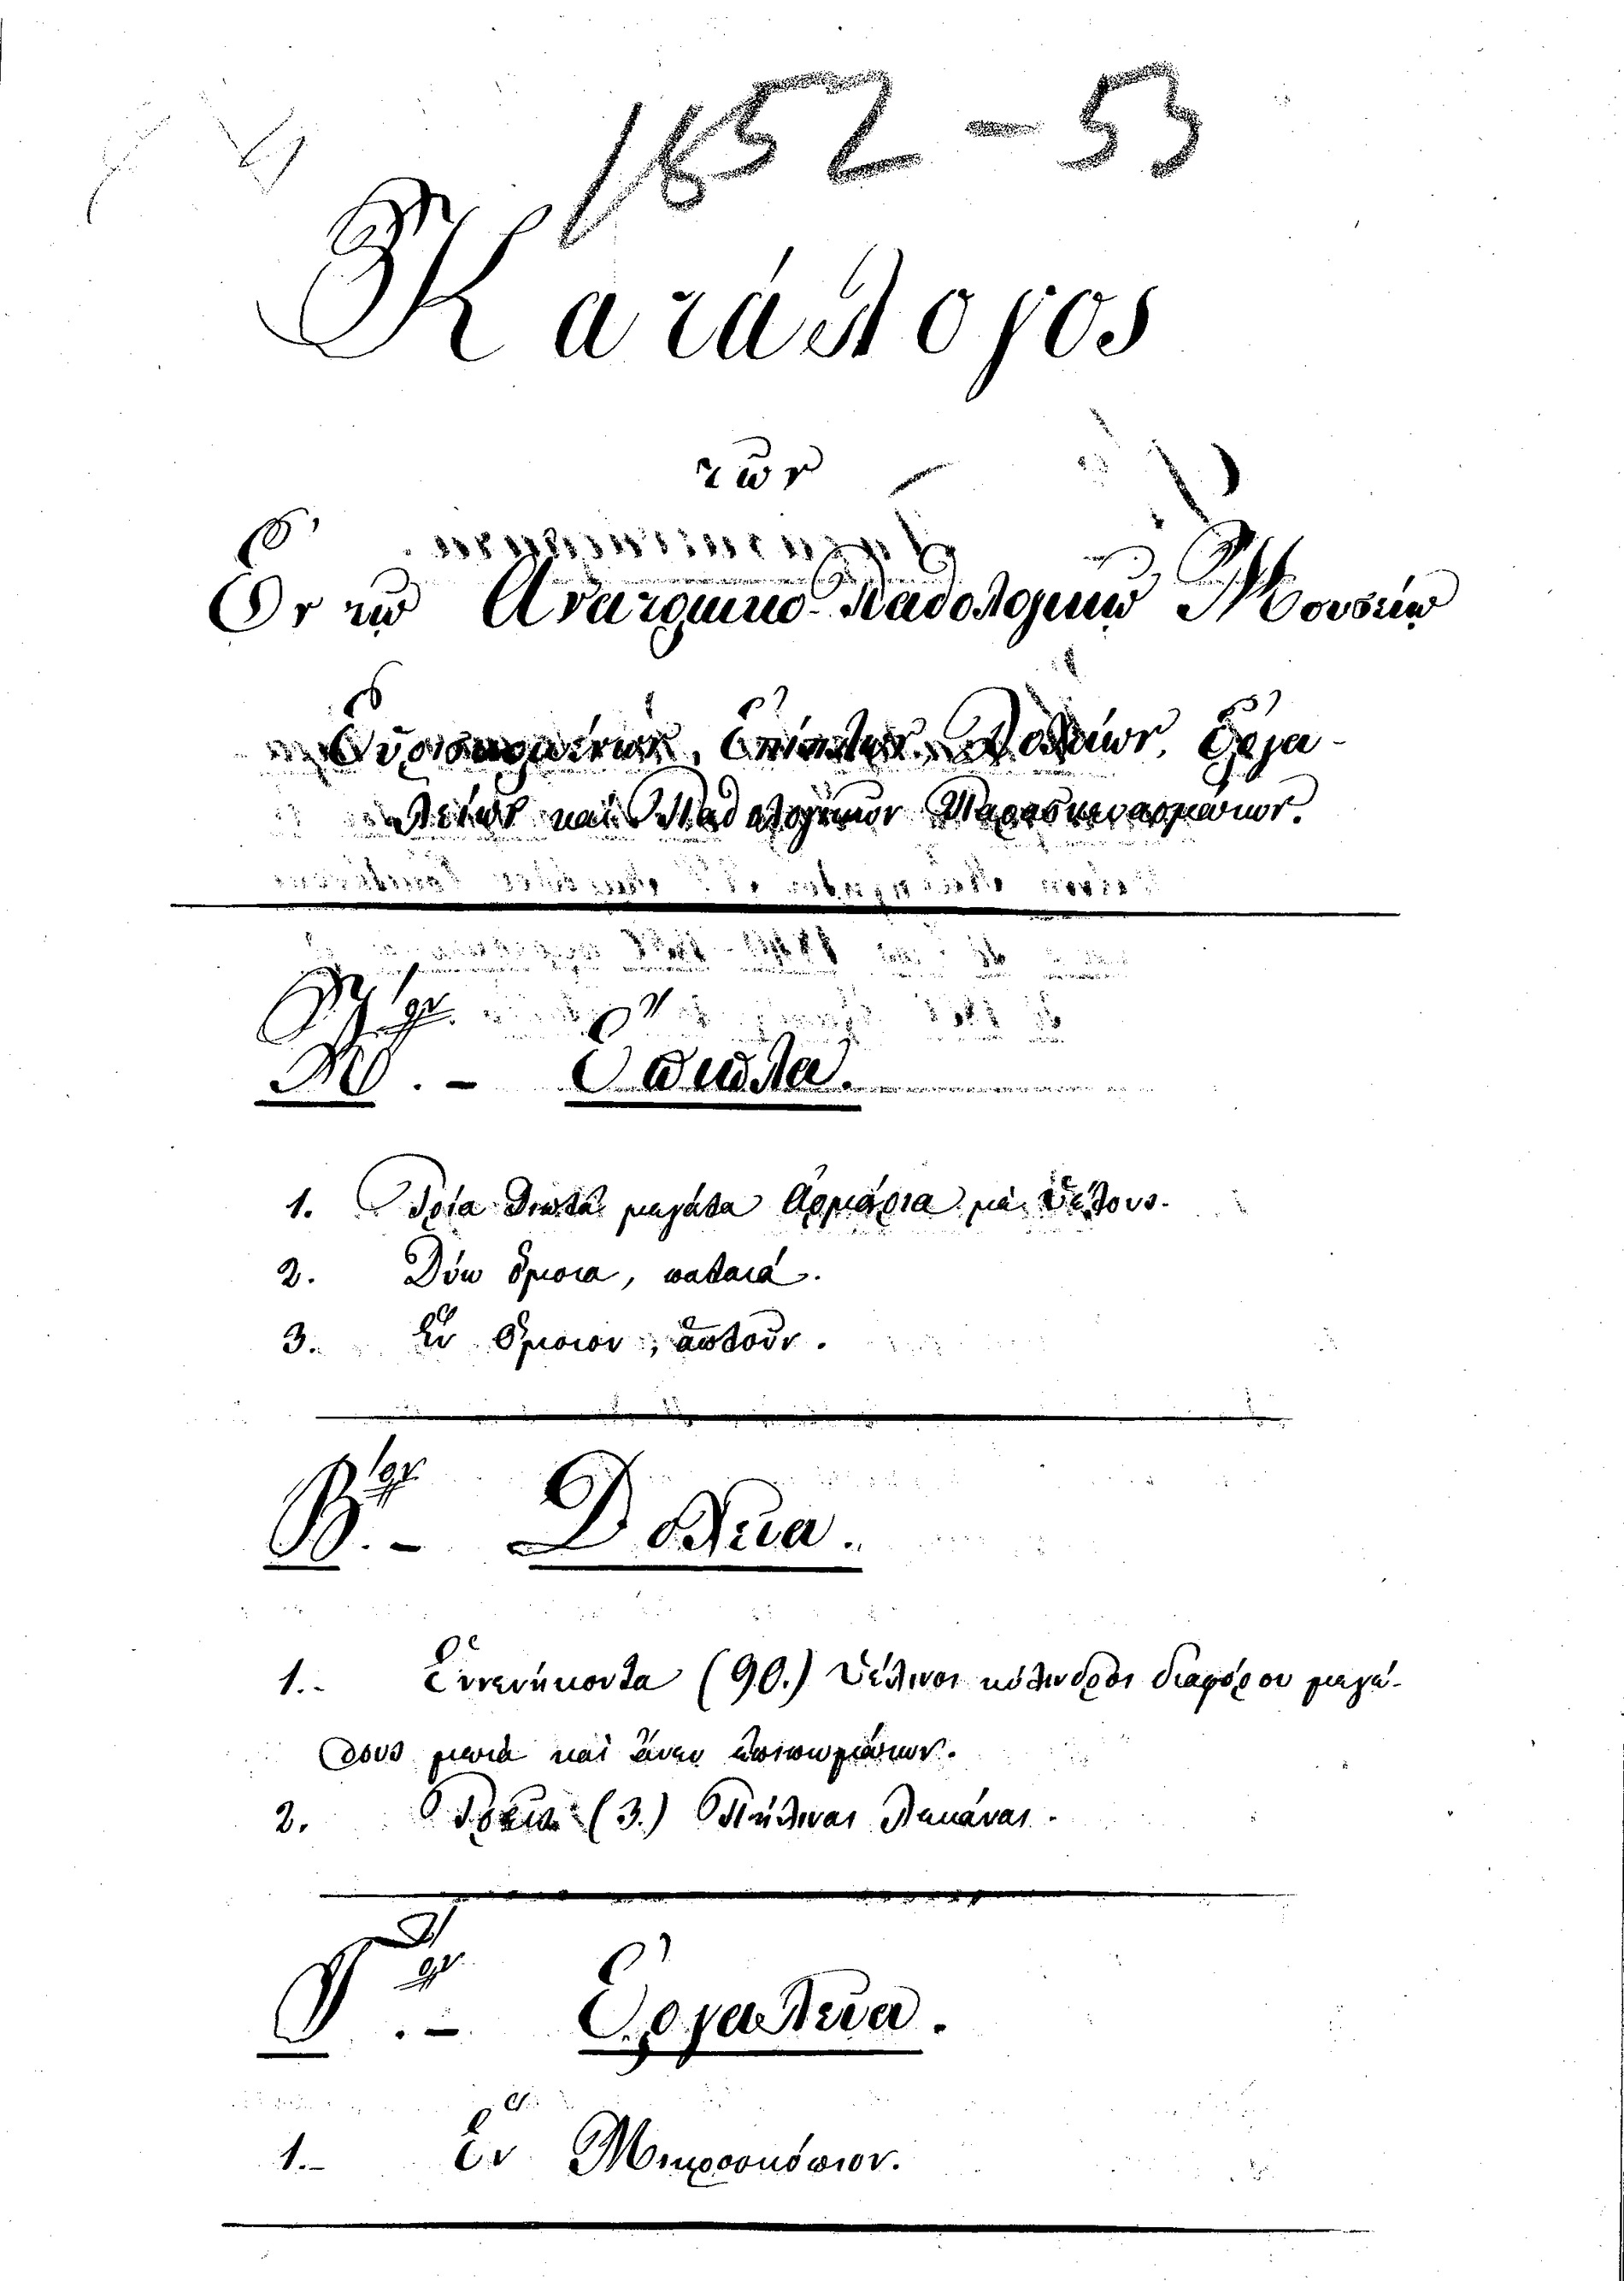 1852-53
Κατάλογος
τῶν
Ἐν τῷ Ἀνατομικο-Παθολογικῷ Μουσείῳ
Εὑρισκομένων, Ἐπίπλων, Δοχείων, Ἐργα-
λείων καὶ Παθολογικῶν Παρασκευασμάτων.
Αον. - Ἔπιπλα.
1. Τρία διπλᾶ μεγάλα Ἀρμάρια μὲ ὑέλους.
2. Δύω ὅμοια, παλαιά.
3. Ἓν ὅμοιον, ἁπλοῦν.
Βον. - Δοχεῖα.
1.- Ἐννενήκοντα (90.) ὑέλινοι κύλινδροι διαφόρου μεγέ-
θους μετὰ καὶ ἄνευ ἐπιπωμάτων.
2. Τρεῖς (3.) Πηλίνας Λεκάνας.
Γον. - Ἐργαλεῖα.
1.- Ἓν Μικροσκόπιον.